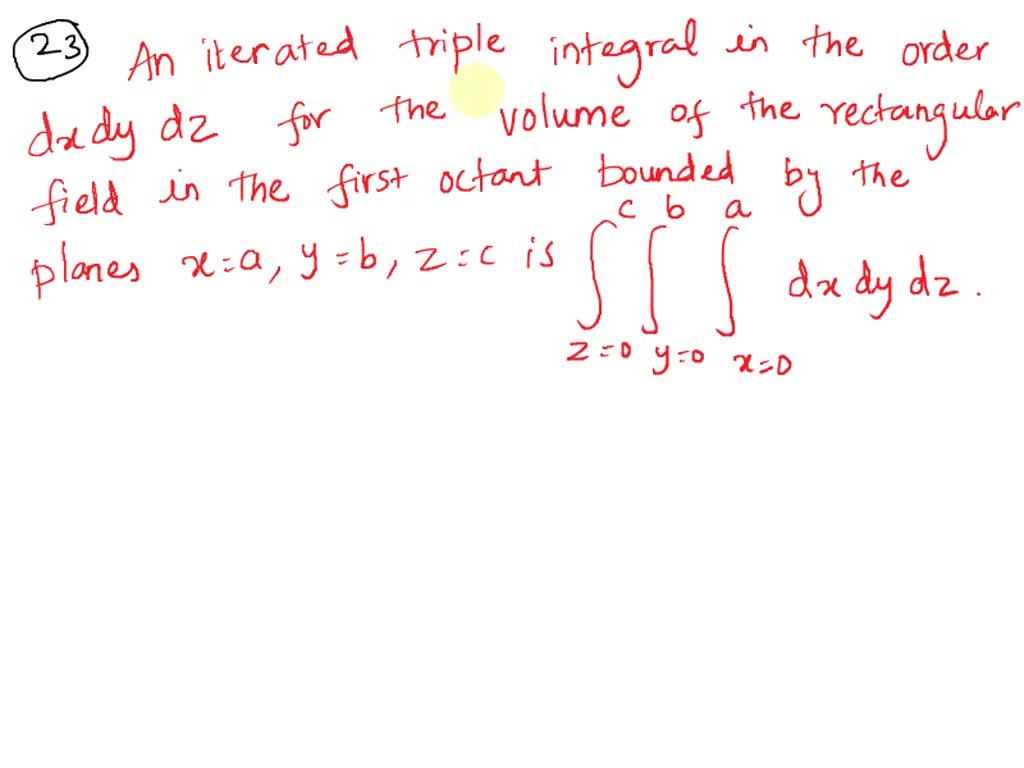 23 An iterated triple integral in the order
dx dy dz for the volume of the rectangular
field in the first octant bounded by the
planes x=a, y=b, z=c is ∫_{z=0}^{c} ∫_{y=0}^{b} ∫_{x=0}^{a} dx dy dz.